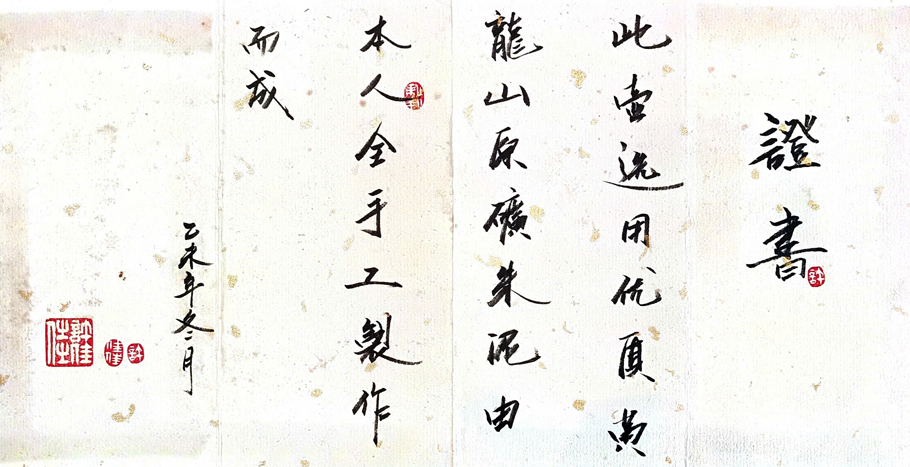 證書
此壺选用优质黄
龍山原礦朱泥由
本人全手工製作
而成
乙未年冬月
許